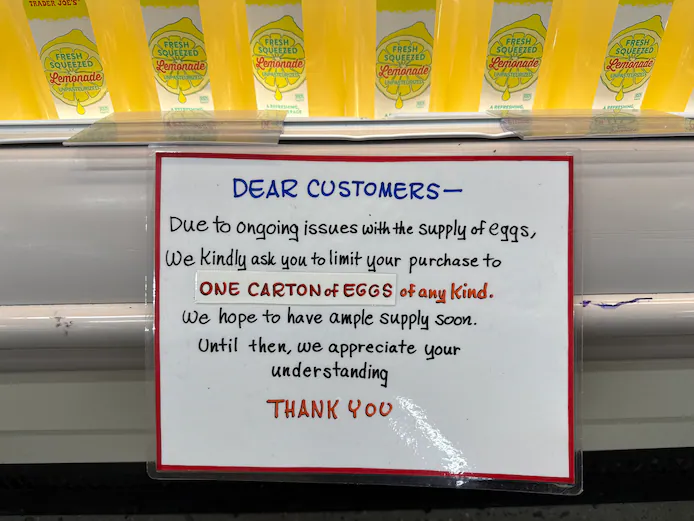 TRADER JOE'S
FRESH
SQUEEZED
Lemonade
UNPASTEURIZED
FRESH
SQUEEZED
Lemonade
UNPASTEURIZED
FRESH
SQUEEZED
Lemonade
UNPASTEURIZED
FRESH
SQUEEZED
Lemonade
UNPASTEURIZED
FRESH
SQUEEZED
Lemonade
UNPASTEURIZED
FRESH
SQUEEZED
Lemonade
UNPASTEURIZED
DEAR CUSTOMERS—
Due to ongoing issues with the supply of eggs,
We kindly ask you to limit your purchase to
ONE CARTON of EGGS of any Kind.
We hope to have ample supply soon.
Until then, we appreciate your
understanding
THANK YOU